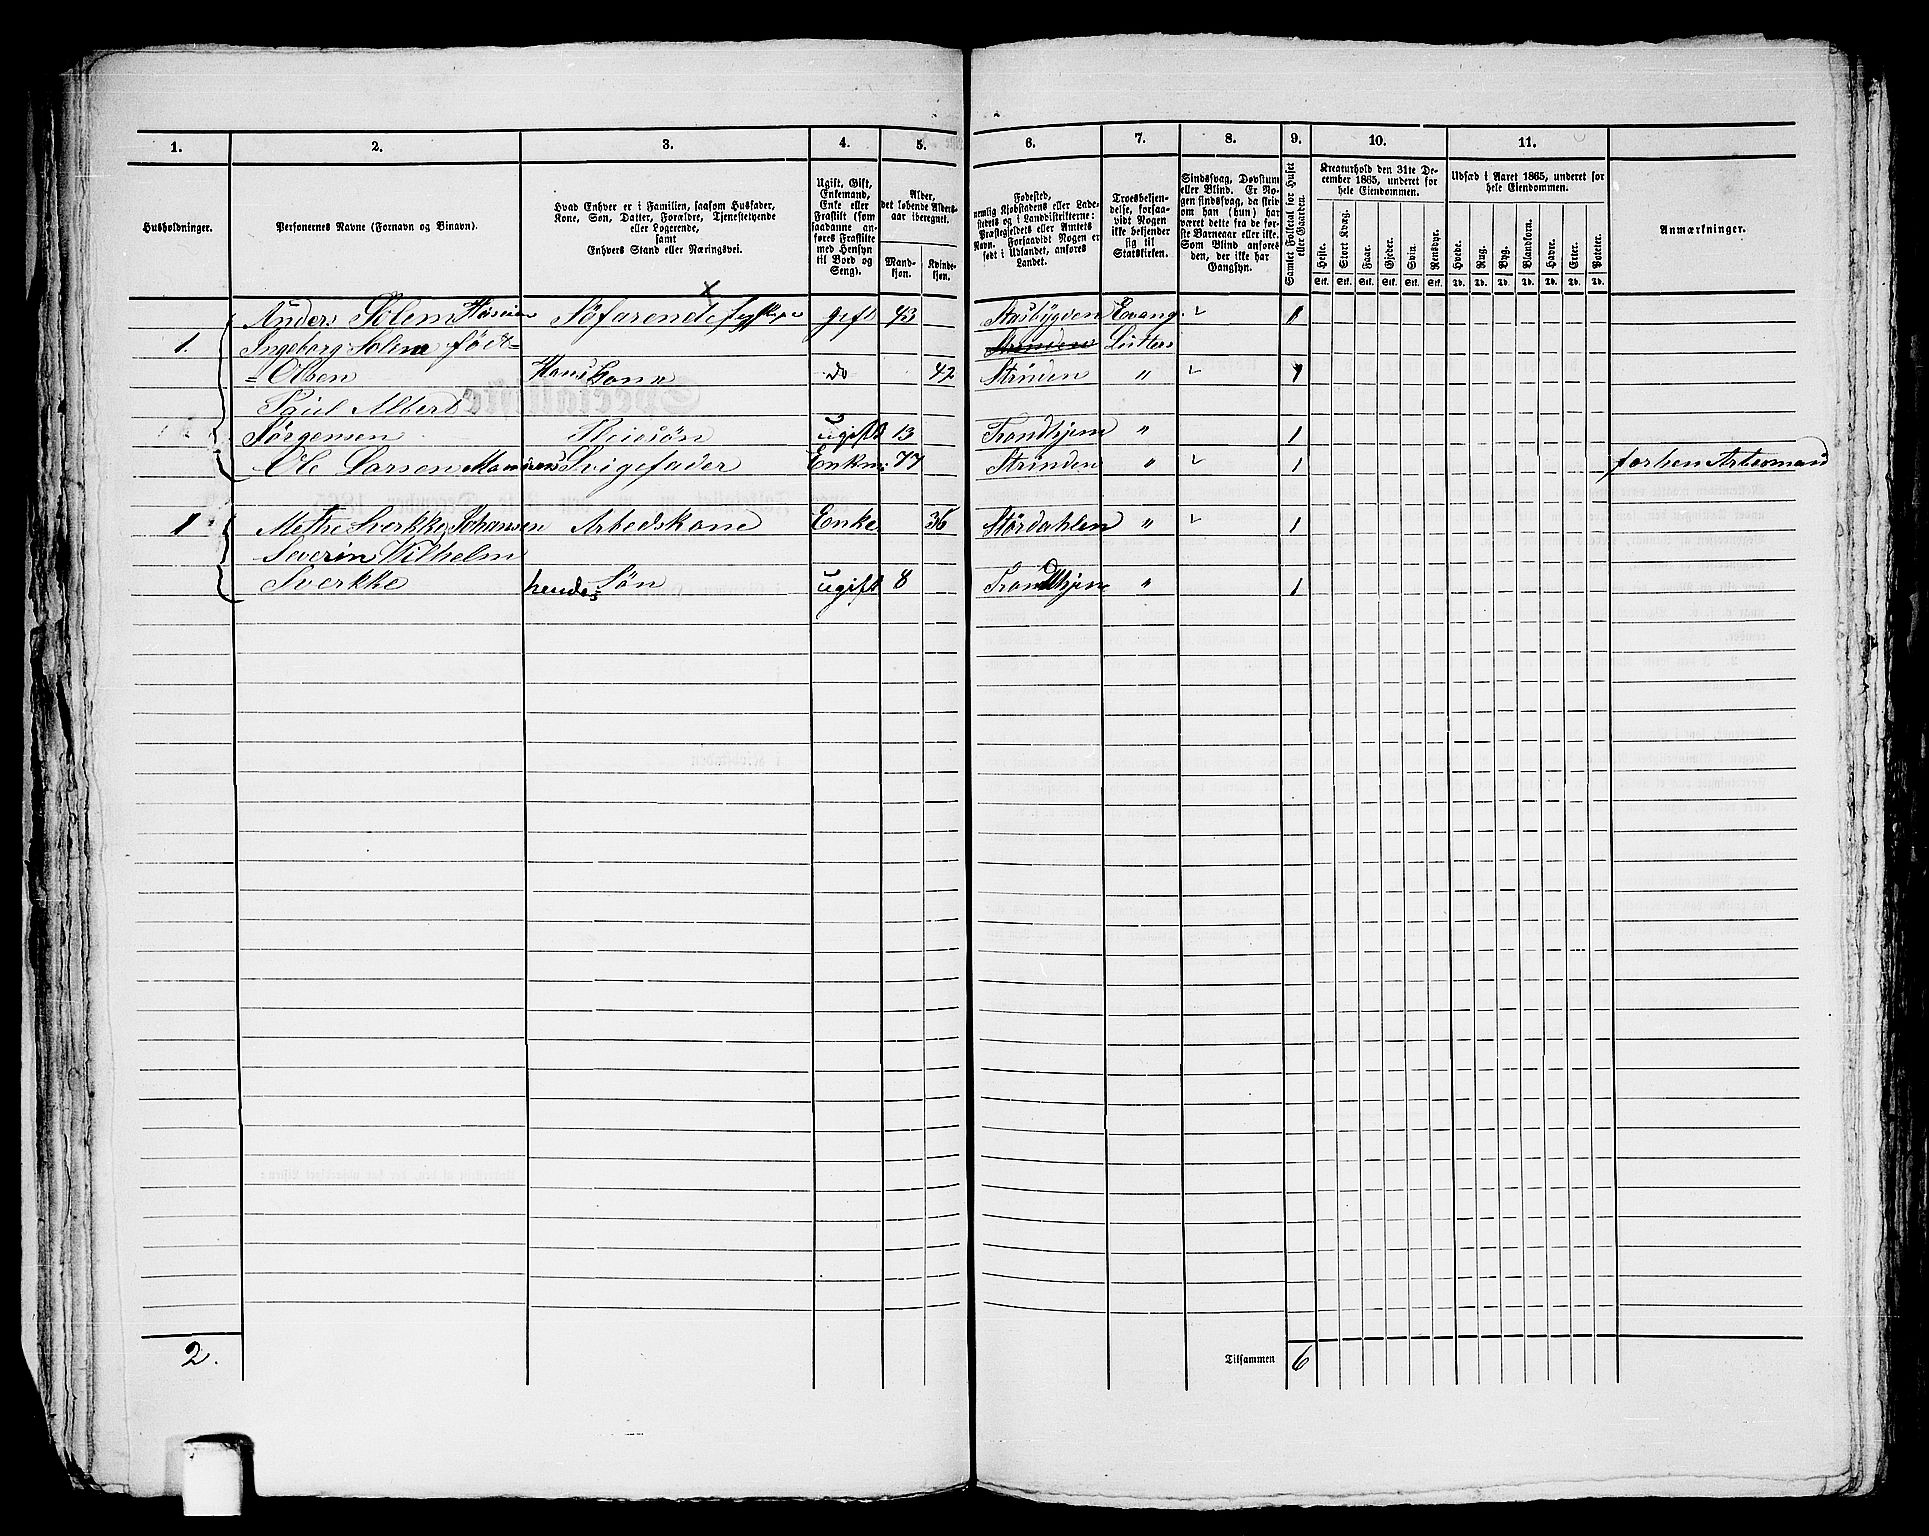 1. 2. 3. 4. 5. 6. 7. 8. 9. 10. 11.
Husholdninger.
Personernes Navne (Fornavn og Binavn).
Hvad Enhver er i Familien, saasom Husfader,
Kone, Søn, Datter, Forældre, Tjenestetyende
eller Logerende,
samt
Enhvers Stand eller Næringsvei.
Ugift, Gift,
Enkemand,
Enke eller
Fraskilt (som
saadanne an-
føres Fraskilte
med Hensyn
til Bord og
Seng).
Alder,
det løbende Alders-
aar iberegnet.
Mand-
kjøn.
Kvinde-
kjøn.
Fødested,
nemlig Kjøbstadens eller Lade-
stedets og i Landdistrikterne:
Præstegjeldets eller Amtets
Navn. Forsaavidt Nogen er
født i Udlandet, anføres
Landet.
Troesbekjen-
delse, forsaa-
vidt Nogen
ikke bekjender
sig til
Statskirken.
Sindssvag, Døvstum
eller Blind. Er No-
gen sindssvag, da skriv
om han (hun) har
været dette fra de før-
ste Barneaar eller ikke.
Som Blind anføres
den, der ikke har
Gangsyn.
Samlet Folketal for Huset
eller Gaarden.
Kreaturhold den 31te De-
cember 1865, underet for
hele Eiendommen.
Heste. Stort Kvæg. Faar. Gjeder. Svin. Rensdyr.
Stk. Stk. Stk. Stk. Stk. Stk.
Udsæd i Aaret 1865, underet for
hele Eiendommen.
Hvede. Rug. Byg. Blandkorn. Havre. Erter. Poteter.
Td. Td. Td. Td. Td. Td. Td.
Anmærkninger.
Anders Solem Søfarende gift 43 Aasbygden Evang. 1
1. Ingeborg Solem født Strinden Luthers
Olsen Hans Kone do 42 Strinden " 1
Paul Albert
Jørgensen Pleiesøn ugift 13 Trondhjem " 1
Ole Larsen Svigefader Enkm: 77 Strinden " 1 forhen Arbesmand
1 Methe Sverkke Johansen Arbedskone Enke 36 Størdahlen " 1
Severin Wilhelm
Sverkke hendes Søn ugift 8 Trondhjem " 1
2. Tilsammen 6